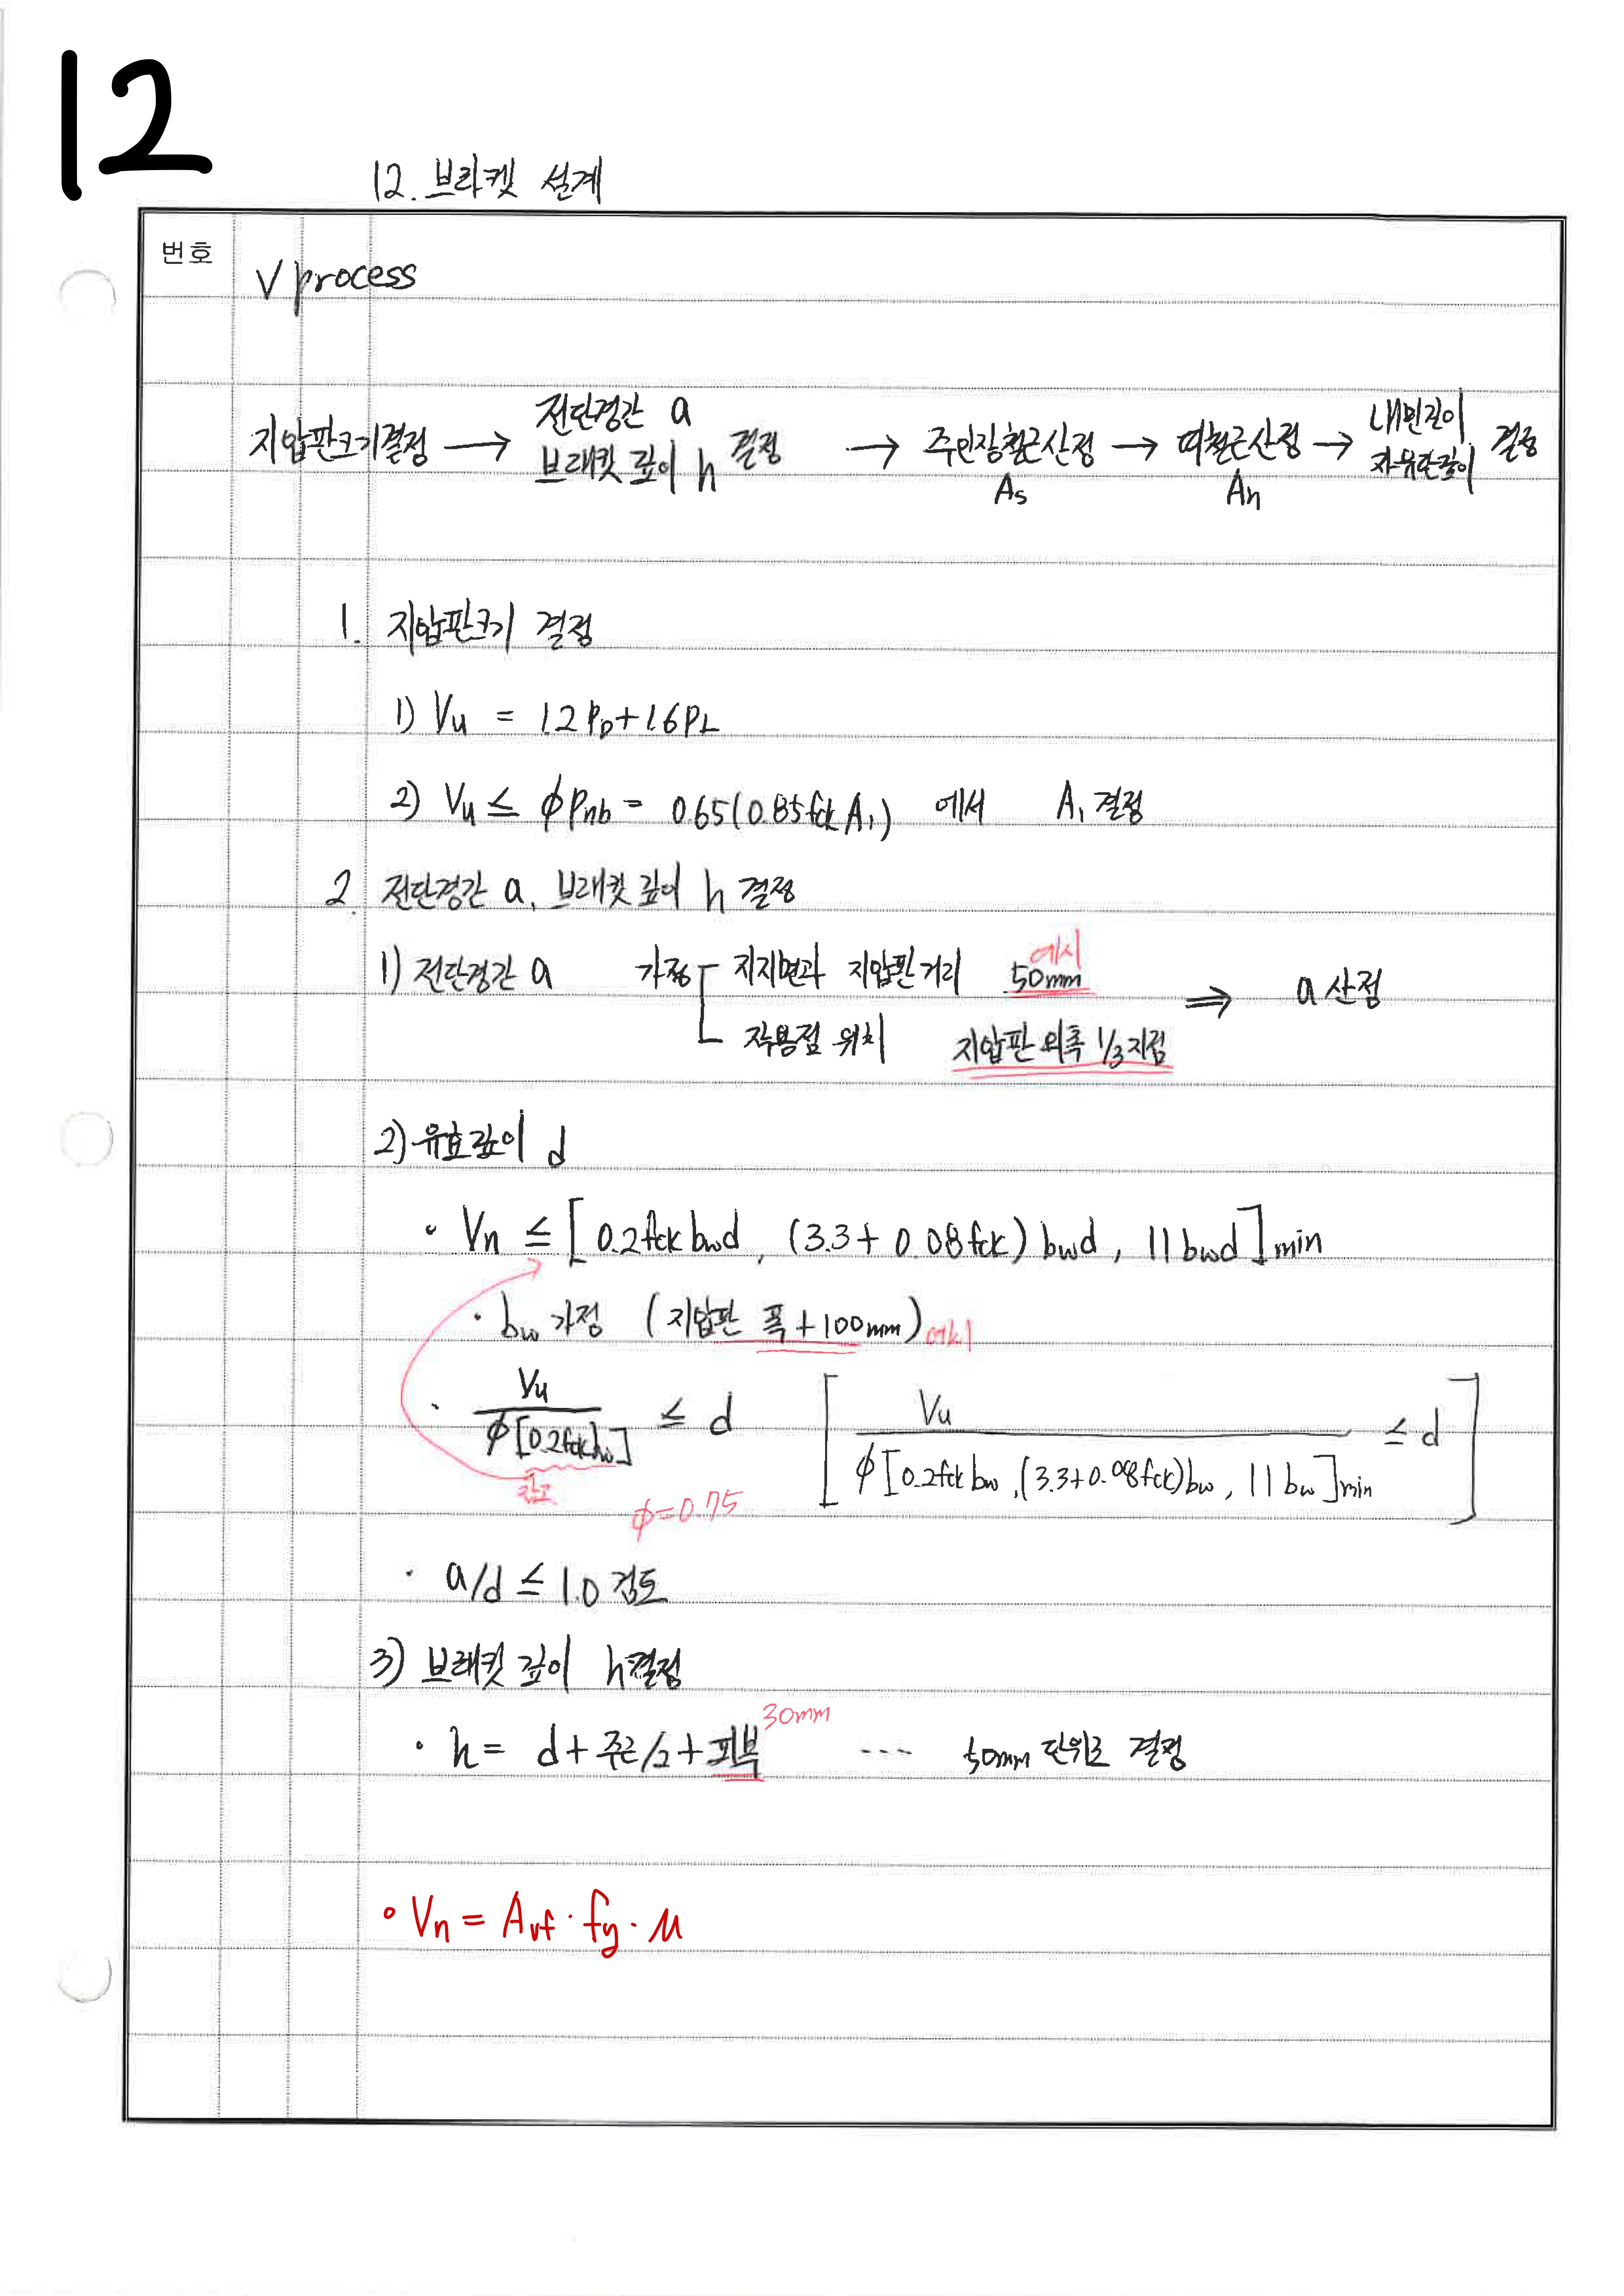 12
12. 브라켓 설계
번호
V process
지압판크기결정 → 전단경간 a 브래킷 깊이 h 결정 → 주인장철근산정 As → 띠철근산정 Ah → 내민길이 자유단깊이 결정
1. 지압판크기 결정
1) Vu = 1.2PD+1.6PL
2) Vu ≤ φPnb = 0.65(0.85fck A1) 에서 A1 결정
2. 전단경간 a, 브래킷 깊이 h 결정
1) 전단경간 a 가정 지지면과 지압판 거리 50mm 예시 ⇒ a 산정
작용점 위치 지압판 외측 1/3지점
2) 유효깊이 d
• Vn ≤ [0.2fck bwd, (3.3+0.08fck) bwd, 11bwd]min
· bw 가정 (지압판 폭+100mm) 예시
· Vu / φ[0.2fckbw] ≤ d [Vu / φ[0.2fck bw, (3.3+0.08fck)bw, 11bw]min ≤ d]
참고
φ=0.75
· a/d ≤ 1.0 검토
3) 브래킷 깊이 h결정
30mm
• h = d + 주근/2 + 피복 ... 50mm 단위로 결정
• Vn = Avf · fy · μ